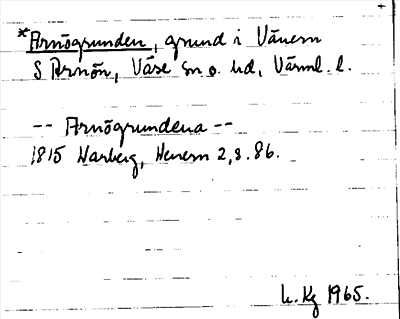 +
*Arnögrunden, grund i Vänern
S Arnön, Väse sn o. hd, Värml. l.
-- Arnögrundena --
1815 Warberg, Wenern 2,8.86.
L. Kg 1965.